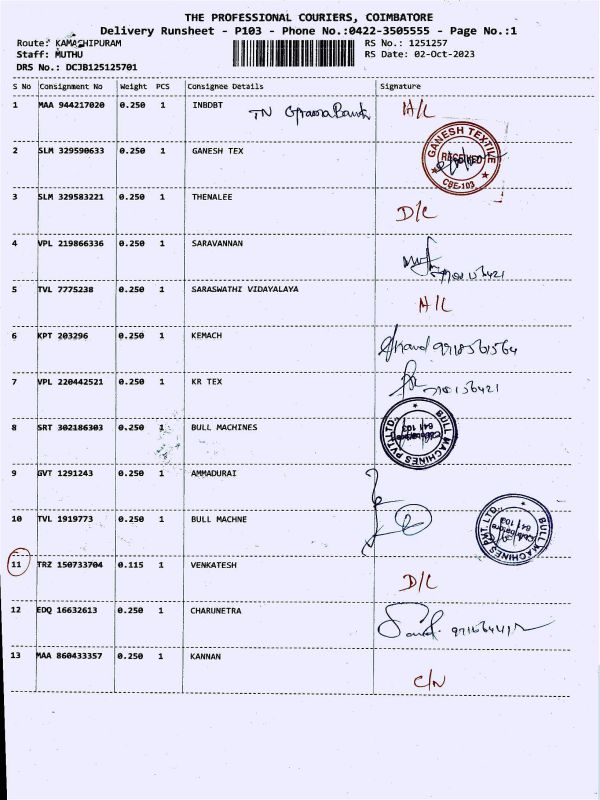 THE PROFESSIONAL COURIERS, COIMBATORE
Delivery Runsheet - P103 - Phone No.:0422-3505555 - Page No.:1
Route: KAMACHIPURAM RS No.: 1251257
Staff: MUTHU RS Date: 02-Oct-2023
DRS No.: DCJB125125701
S No Consignment No Weight PCS Consignee Details Signature
1 MAA 944217020 0.250 1 INBDBT TN Grama Bank A/L
2 SLM 329590633 0.250 1 GANESH TEX GANESH TEXTILE RECEIVED CBE-103
3 SLM 329583221 0.250 1 THENALEE D/L
4 VPL 219866336 0.250 1 SARAVANNAN
5 TVL 7775238 0.250 1 SARASWATHI VIDAYALAYA A/L
6 KPT 203296 0.250 1 KEMACH
7 VPL 220442521 0.250 1 KR TEX
8 SRT 302186303 0.250 1 BULL MACHINES BULL MACHINES PVT.LTD., Coimbatore 641 103
9 GVT 1291243 0.250 1 AMMADURAI
10 TVL 1919773 0.250 1 BULL MACHNE BULL MACHINES PVT. LTD., Coimbatore 641 103
11 TRZ 150733704 0.115 1 VENKATESH D/L
12 EDQ 16632613 0.250 1 CHARUNETRA
13 MAA 860433357 0.250 1 KANNAN C/N